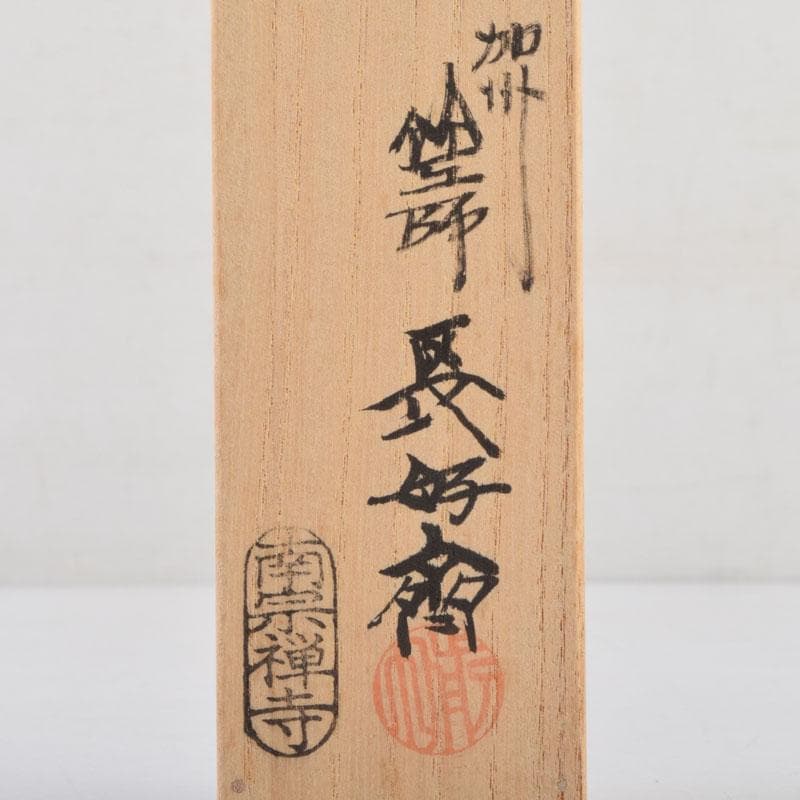 加州
塗師
長好斎
南宗禅寺